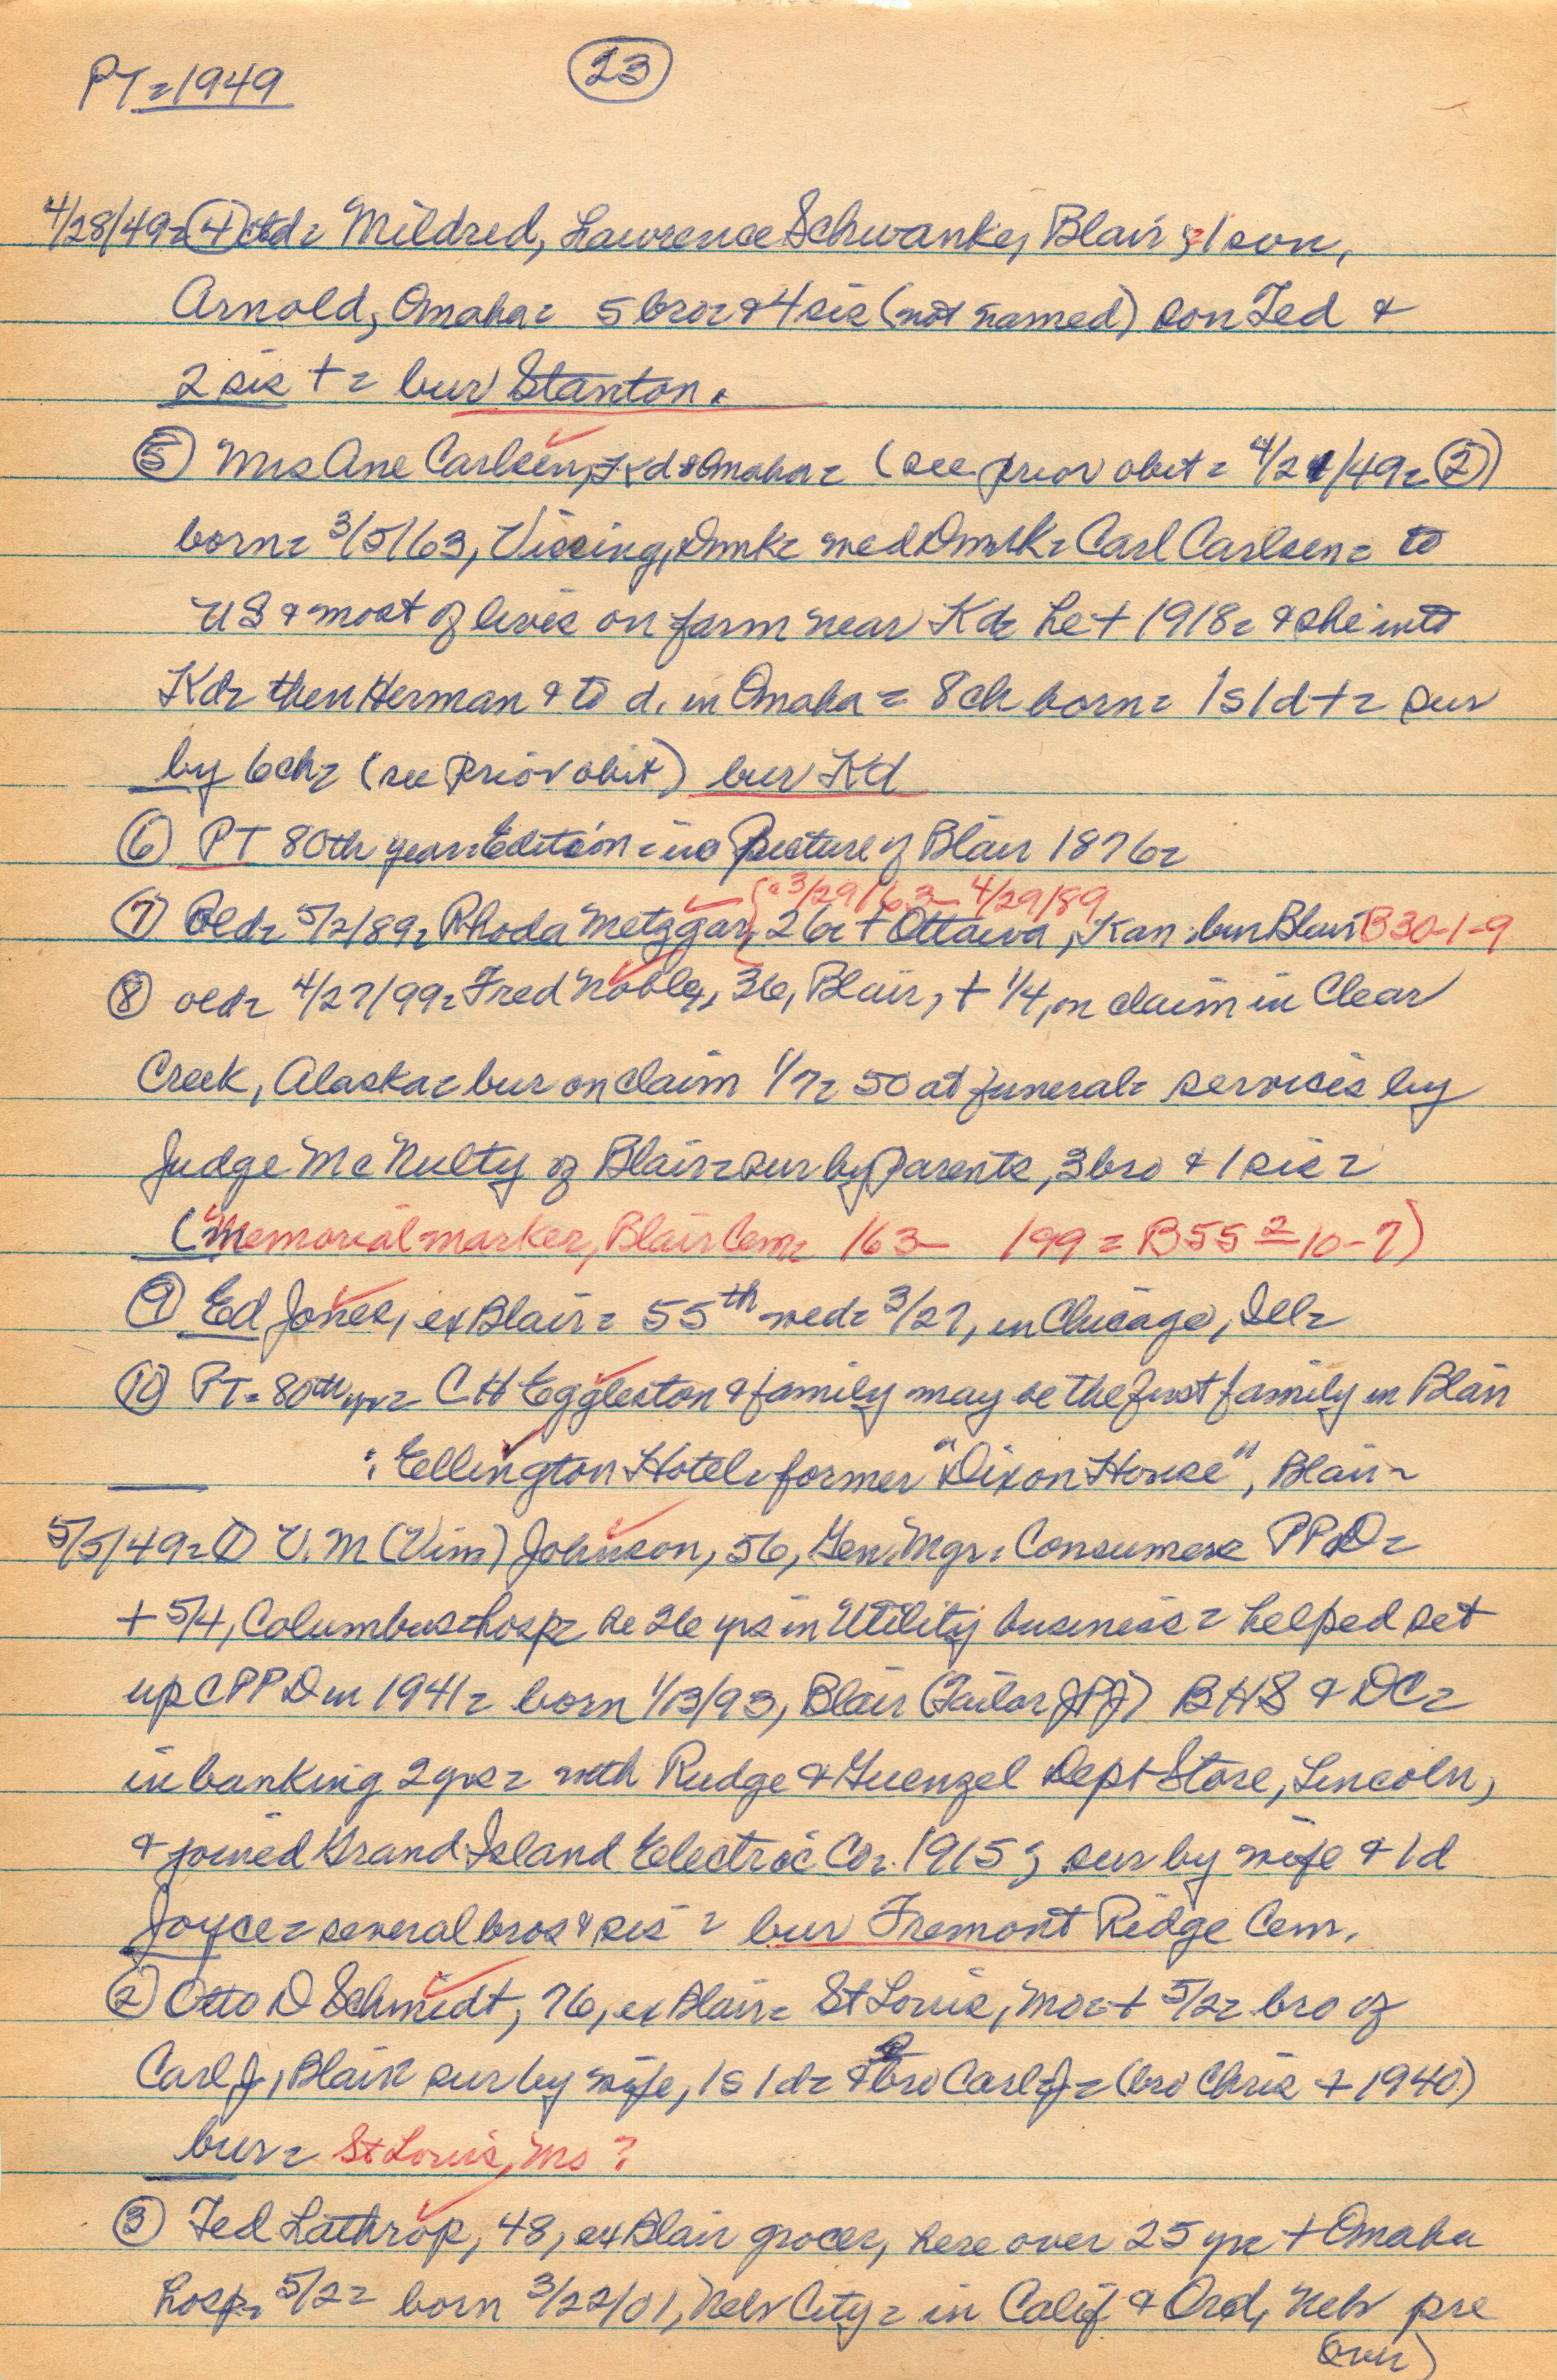 PT=1949
23
4/28/49= 4 ctd= Mildred, Lawrence Schwanke, Blair; 1 son,
Arnold, Omaha= 5 bro= & 4 sis (not named) son Ted &
2 sis += bur Stanton.
5 Mrs Ane Carlsen, Kd & Omaha= (see prior obit= 4/21/49= 2)
born= 3/5/63, Vissing, Dnmk= med Dnmk= Carl Carlsen= to
US & most of lives on farm near Kd= he + 1918= & she into
Kd= then Herman & to d. in Omaha= 8 ch born= 1s 1d += sur
by 6 ch= (see prior obit) bur Kd
6 PT 80th year= Edition= Picture of Blair 1876=
"3/29/63- 4/29/89
7 Old= 5/2/89= Rhoda Metzgar, 26= + Ottawa, Kan, bur Blair B30-1-9
8 old= 4/27/99= Fred Noble, 36, Blair, + 1/4, on claim in Clear
Creek, Alaska= bur on claim 1/7= 50 at funeral= services by
Judge McNulty of Blair= sur by parents, 3 bro & 1 sis=
(Memorial marker, Blair Cem= 163- 199= B55 2= 10-7)
9 Ed Jones, ex Blair= 55th wed= 3/27, in Chicago, Ill=
10 PT= 80th yr= C H Eggleston & family may be the first family in Blair
: Ellington Hotel= former "Dixon House", Blair=
5/5/49= 1 V. M (Vim) Johnson, 56, Gen. Mgr. Consumers PPD=
+ 5/4, Columbus= hosp= he 26 yrs in Utility business= helped set
up CPPD in 1941= born 1/13/93, Blair (Tailor JPJ) BHS & DC=
in banking 2 yrs= with Rudge & Guenzel Dept Store, Lincoln,
& joined Grand Island Electric Co= 1915; sur by wife & 1d
Joyce= several bros & sis= bur Fremont Ridge Cem.
2 Otto D Schmidt, 76, ex Blair= St Louis, Mo= + 5/2= bro of
Carl J, Blair sur by wife, 1s 1d= & bro Carl J= (bro Chris + 1940)
bur= St Louis, Mo?
3 Ted Lathrop, 48, ex Blair grocer, here over 25 yrs + Omaha
hosp= 5/2= born 3/22/01, Neb City= in Calif & Ord, Neb pre
(over)